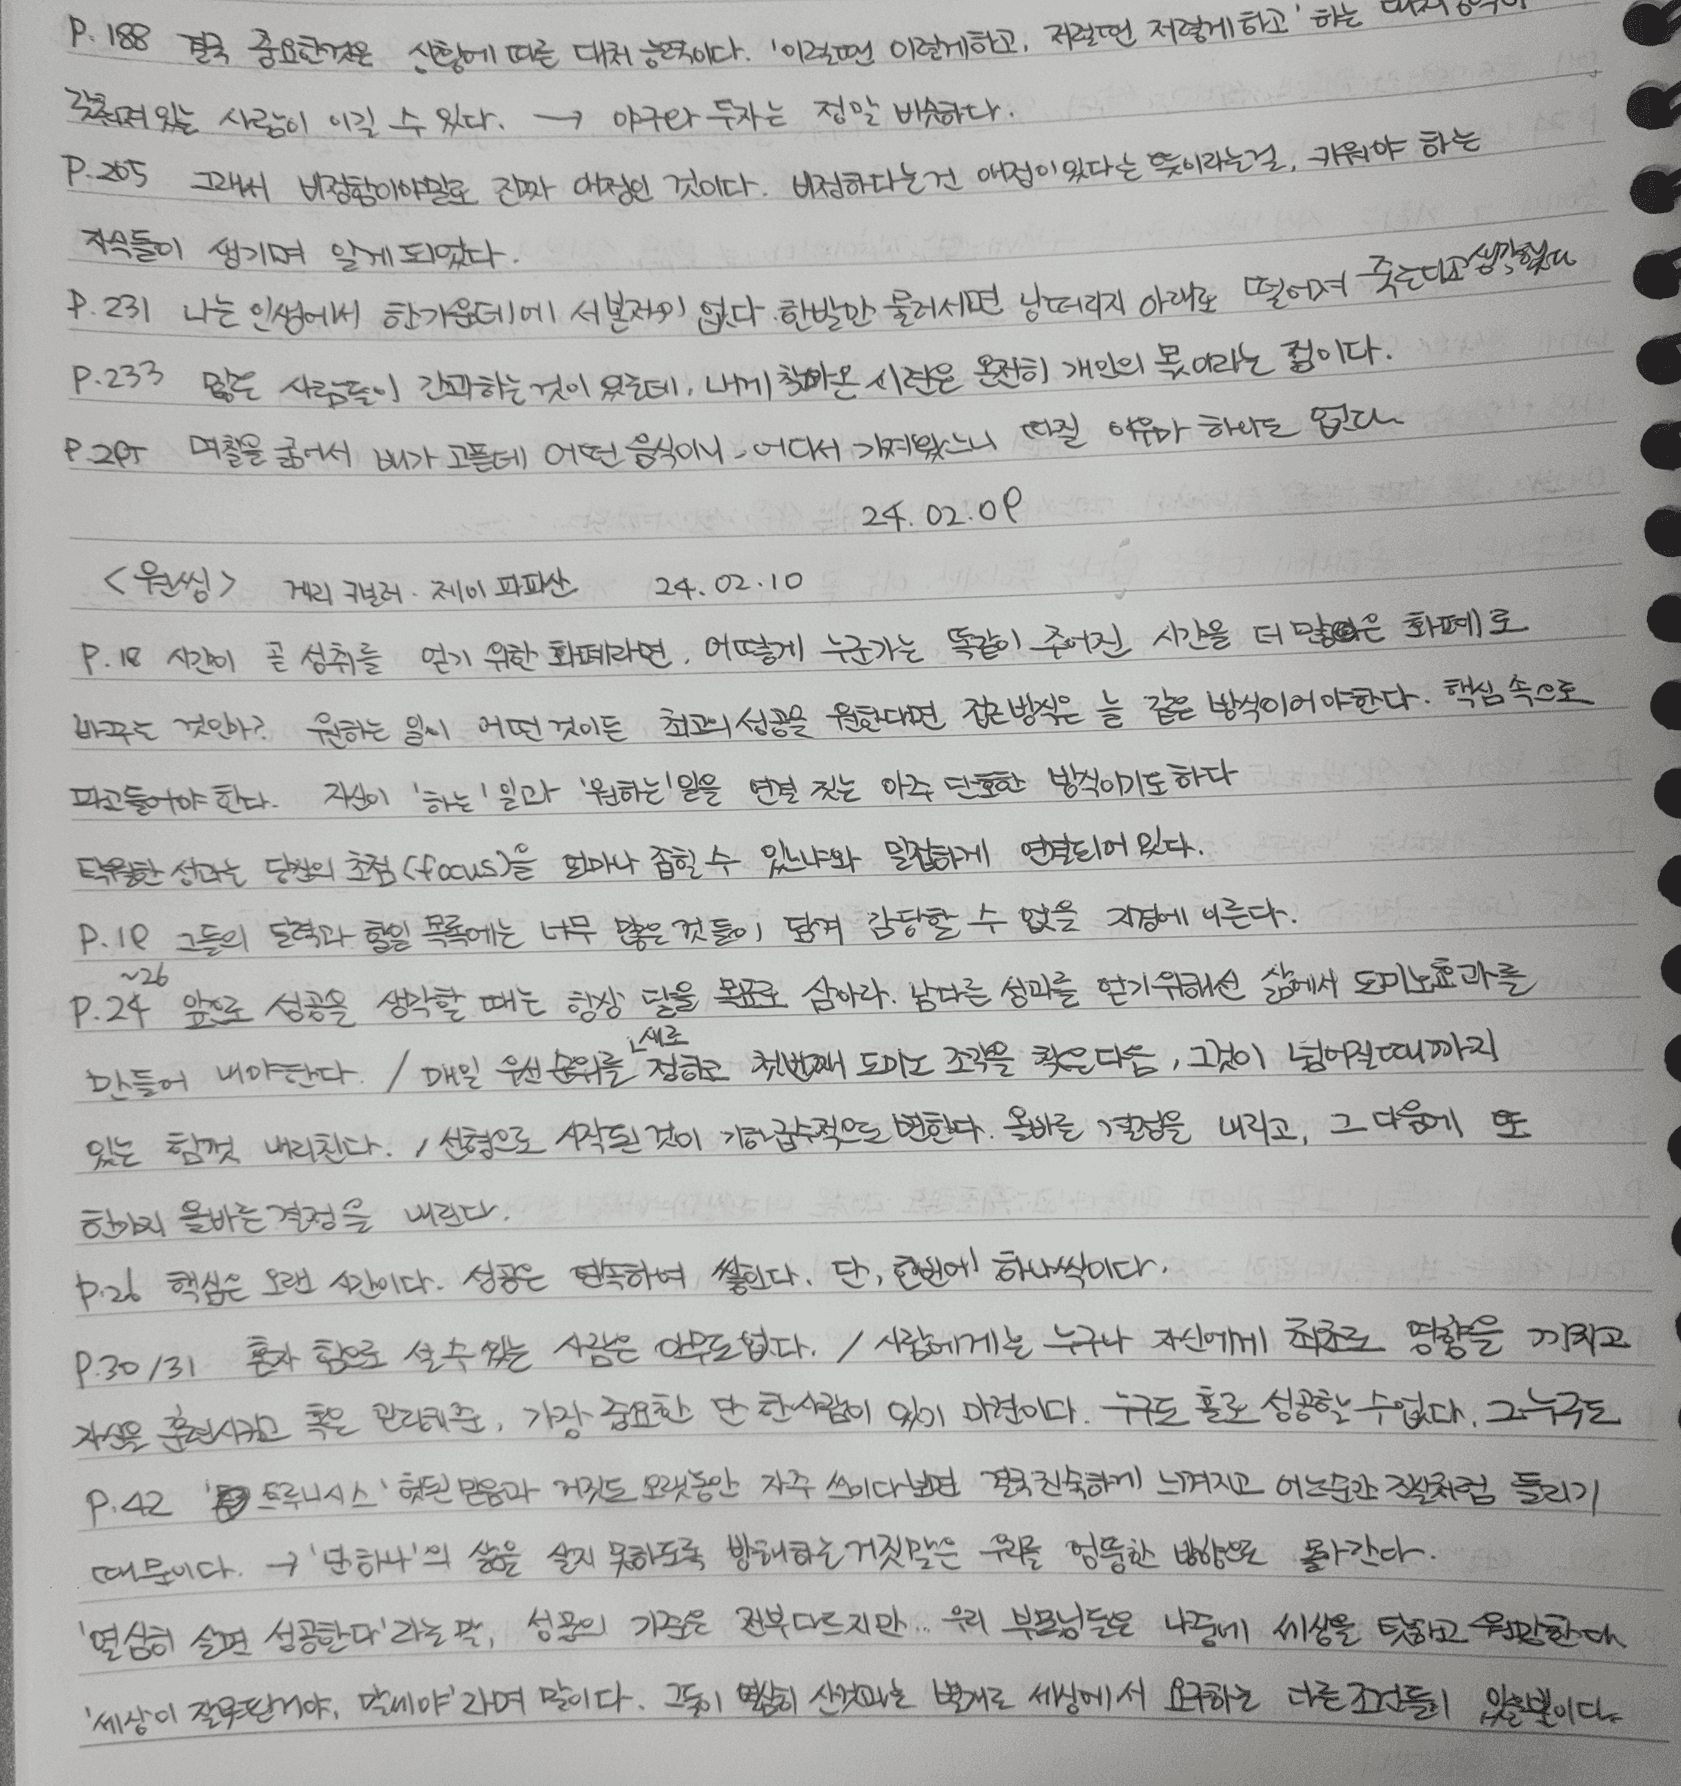 P.188 결국 중요한것은 상황에 따른 대처 능력이다. '이럴때면 이렇게하고, 저럴때면 저렇게하고' 하는 대처능력이
갖춰져 있는 사람이 이길 수 있다. → 야구와 투자는 정말 비슷하다.
P.205 그래서 비정함이야말로 진짜 애정인 것이다. 비정하다는건 애정이 있다는 뜻이라는걸, 키워야 하는
자식들이 생기며 알게 되었다.
P.231 나는 인생에서 한가운데에 서본적이 없다. 한발만 물러서면 낭떠러지 아래로 떨어져 죽는다고 생각했다
P.233 많은 사람들이 간과하는 것이 있는데, 내게 찾아온 시련은 온전히 개인의 몫이라는 점이다.
P.295 며칠을 굶어서 배가 고플데 어떤 음식이니, 어디서 가져왔느니 따질 이유가 하나도 없다
24.02.09
<원씽> 게리 켈러 · 제이 파파산 24.02.10
P.18 시간이 곧 성취를 얻기 위한 화폐라면, 어떻게 누군가는 똑같이 주어진 시간을 더 많은 화폐로
바꾸는 것인가? 원하는 일이 어떤 것이든 최고의 성공을 원한다면 접근방식은 늘 같은 방식이어야한다. 핵심 속으로
파고들어야 한다. 자신이 '하는' 일과 '원하는' 일을 연결 짓는 아주 단호한 방식이기도하다
탁월한 성과는 당신의 초점(focus)을 얼마나 좁힐 수 있느냐와 밀접하게 연결되어 있다.
P.19 그들의 달력과 할일 목록에는 너무 많은 것들이 담겨 감당할 수 없을 지경에 이른다.
~26
P.24 앞으로 성공을 생각할 때는 항상 달을 목표로 삼아라. 남다른 성과를 얻기위해선 삶에서 도미노효과를
만들어 내야한다. / 매일 우선순위를 새로 정하고 첫번째 도미노 조각을 찾은다음, 그것이 넘어질때까지
있는 힘껏 내리친다. / 선형으로 시작된 것이 기하급수적으로 변한다. 올바른 결정을 내리고, 그 다음에 또
한가지 올바른 결정을 내린다.
P.26 핵심은 오랜 시간이다. 성공은 연속하여 쌓인다. 단, 한번에 하나씩이다.
P.30/31 혼자 힘으로 설 수 있는 사람은 아무도 없다. / 사람에게는 누구나 자신에게 최초로 영향을 끼치고
자신을 훈련시키고 혹은 관리해준, 가장 중요한 단 한사람이 있기 마련이다. 누구도 홀로 성공할 수 없다. 그 누구도
P.42 '트루니시스' 헛된 믿음과 거짓도 오랫동안 자주 쓰이다보면 결국 친숙하게 느껴지고 어느순간 진실처럼 들리기
때문이다. → '단 하나'의 삶을 살지 못하도록 방해하는 거짓말은 우리를 엉뚱한 방향으로 몰아간다.
'열심히 살면 성공한다'라는 말, 성공의 기준은 전부다르지만.. 우리 부모님들은 나중에 세상을 탓하고 원망한다
'세상이 잘못된거야, 말세야'라며 말이다. 그들이 열심히 산것과는 별개로 세상에서 요구하는 다른 조건들이 있을뿐이다.